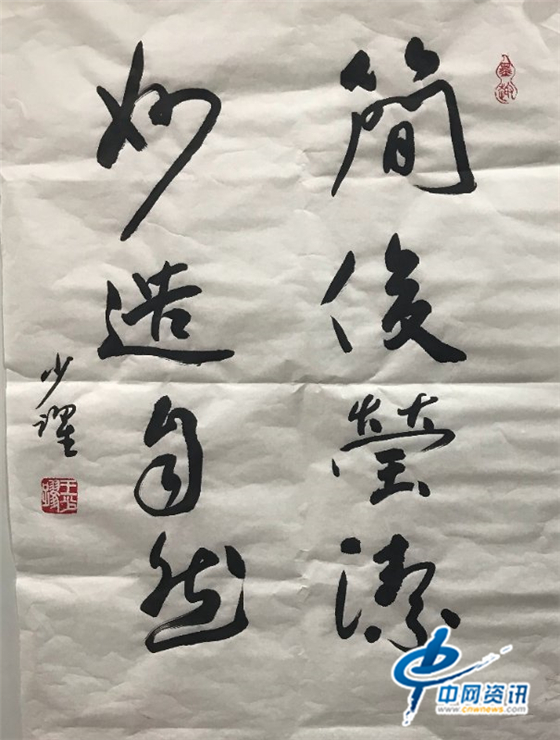 簡俊瑩潔
妙造自然
少躍
中网资讯
www.cnwnews.com